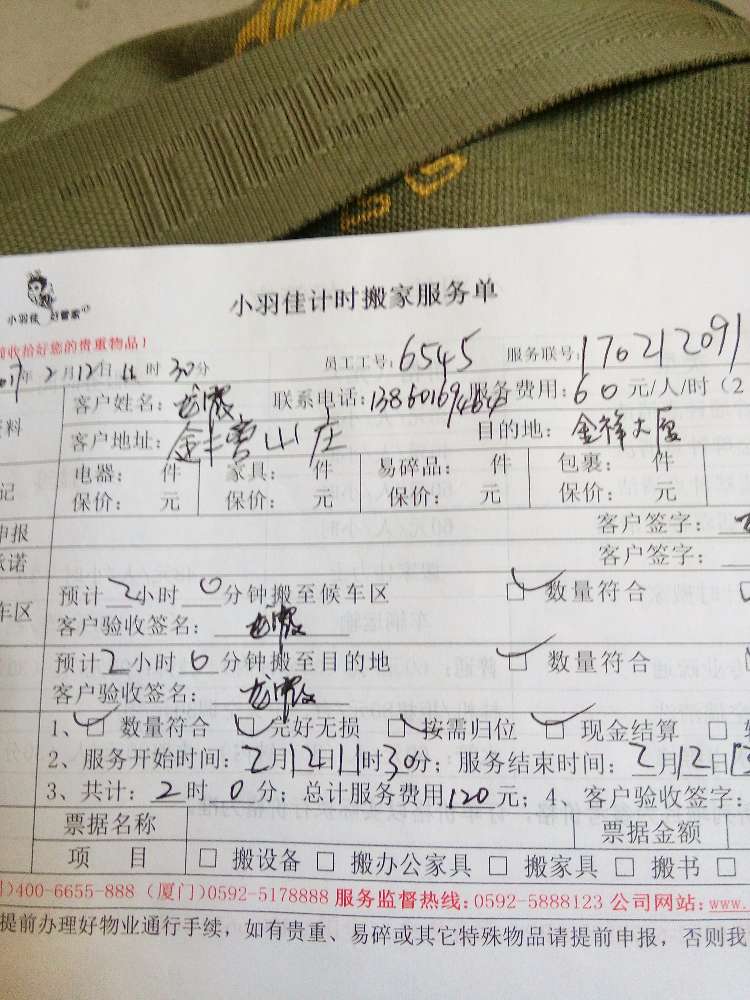 小羽佳 好管家
小羽佳计时搬家服务单
前收拾好您的贵重物品!
年2月12日11时30分 员工工号:6545 服务联号:170212091
客户姓名: 联系电话: 服务费用:60元/人/时(2
客户地址:金丰营山庄 目的地:金祥大厦
电器: 件 家具: 件 易碎品: 件 包裹: 件
保价: 元 保价: 元 保价: 元 保价: 元
申报 客户签字:
承诺 客户签字:
车区 预计2小时0分钟搬至候车区 数量符合
客户验收签名:
预计2小时0分钟搬至目的地 数量符合
客户验收签名:
1、数量符合 完好无损 按需归位 现金结算
2、服务开始时间:2月12日11时30分;服务结束时间:2月12日
3、共计:2时0分;总计服务费用120元;4、客户验收签字:
票据名称 票据金额
项 目 搬设备 搬办公家具 搬家具 搬书
)400-6655-888(厦门)0592-5178888 服务监督热线:0592-5888123 公司网站:www.
提前办理好物业通行手续,如有贵重、易碎或其它特殊物品请提前申报,否则我